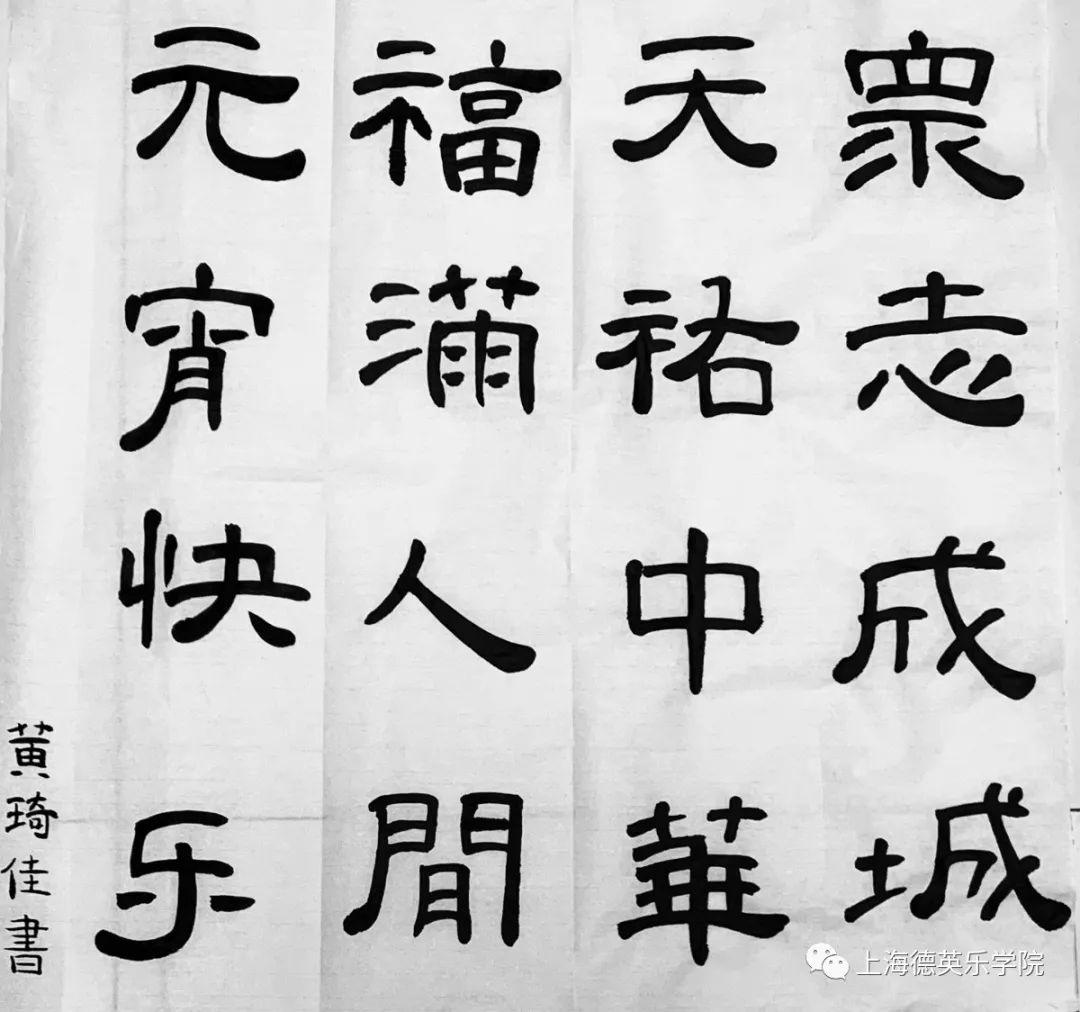 眾志成城
天祐中華
福滿人間
元宵快乐
黄琦佳書
上海德英乐学院